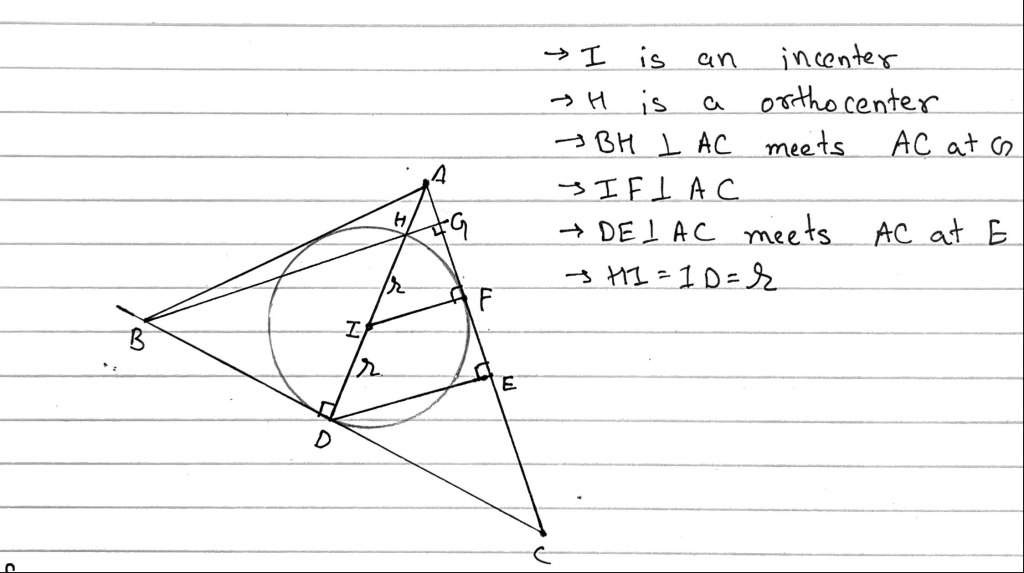 → I is an incenter
→ H is a orthocenter
→ BH ⊥ AC meets AC at G
→ IF ⊥ AC
→ DE ⊥ AC meets AC at E
→ HI = ID = r
A
H
G
r
F
I
B
r
E
D
C